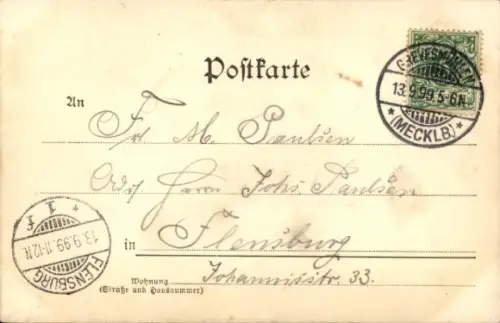 GREVESMÜHLEN
13.9.99.5-6N.
*(MECKLB.)*
Postkarte
An
Frl. M. Paulsen
Adr. Herrn Johs. Paulsen
in Flensburg
Johannisstr. 33.
Wohnung
(Straße und Hausnummer)
* 1 f
13.9.99.11-12N.
FLENSBURG